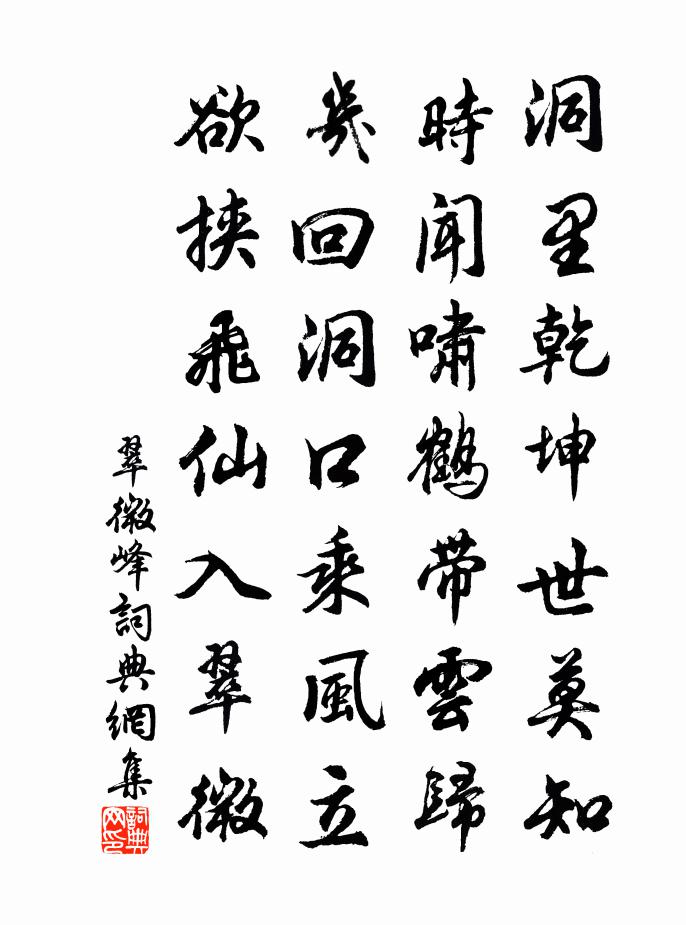 洞里乾坤世莫知
時聞嘯鶴带雲歸
幾回洞口乘風立
欲挾飛仙入翠微
翠微峰詞典網集
詞典网印